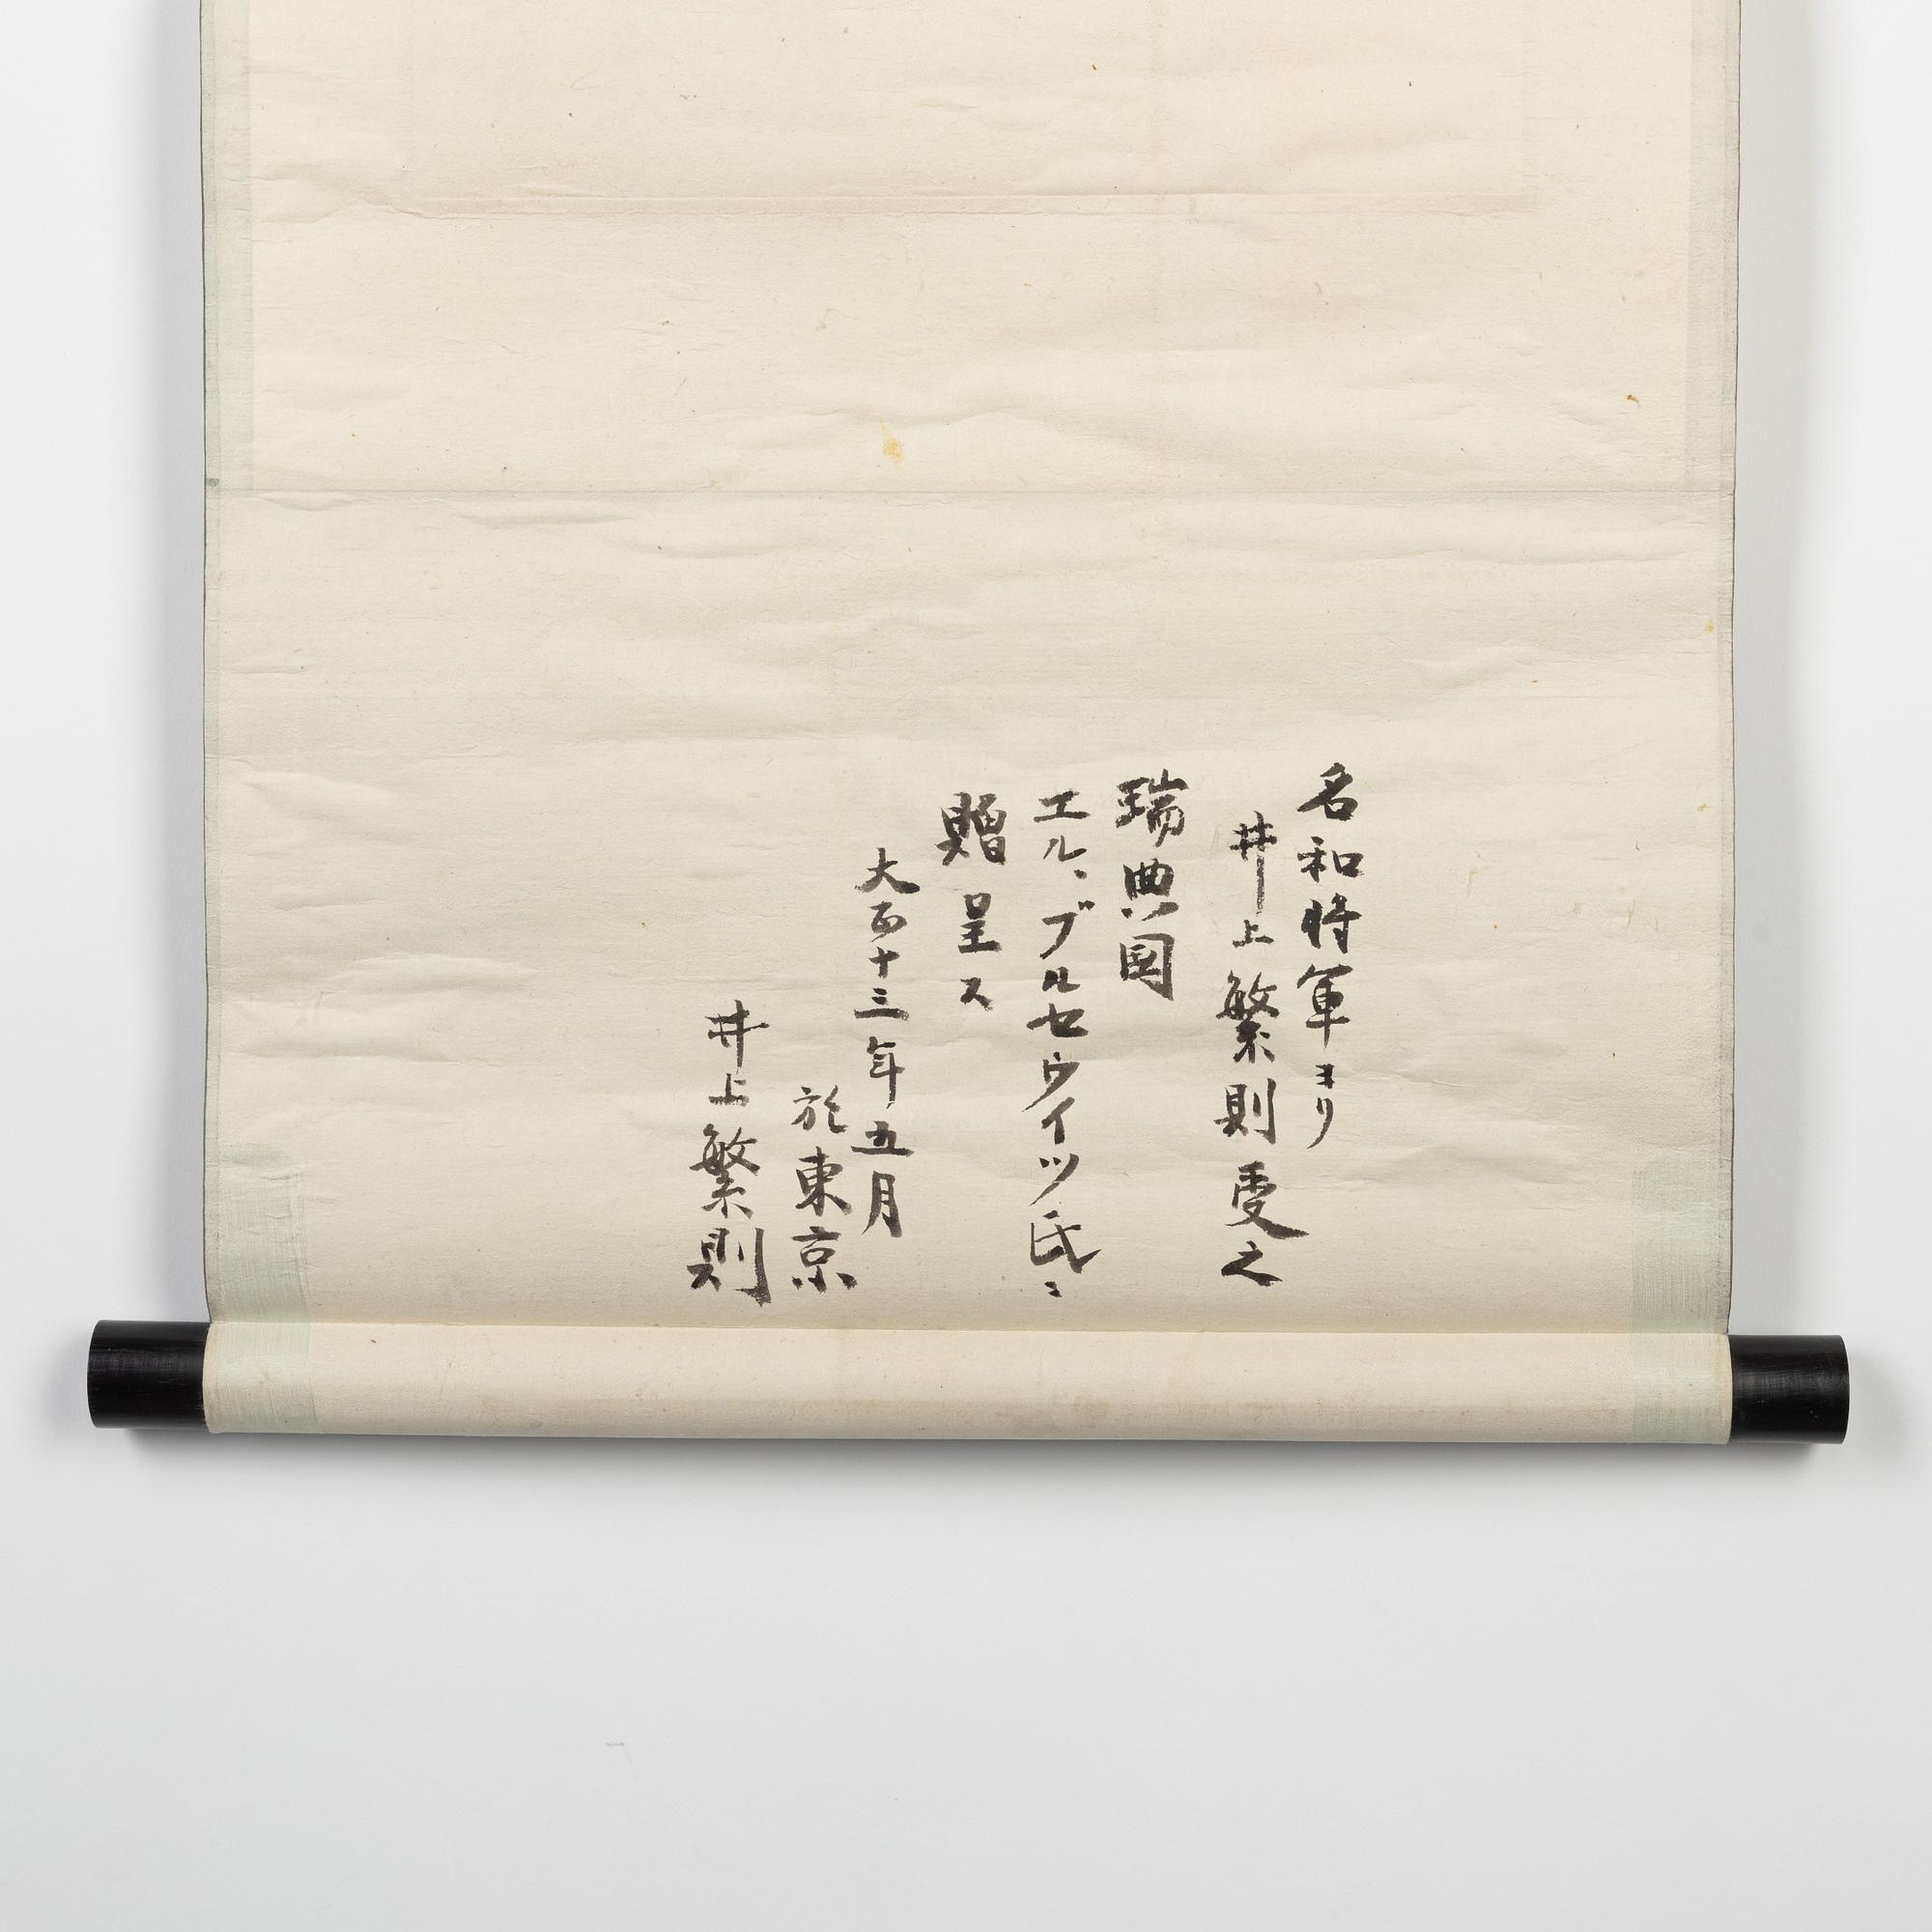 名和将軍ヨリ
井上繁則受之
瑞典国
エル、ブルセウイツ氏ニ
贈呈ス
大正十三年五月
於東京
井上繁則